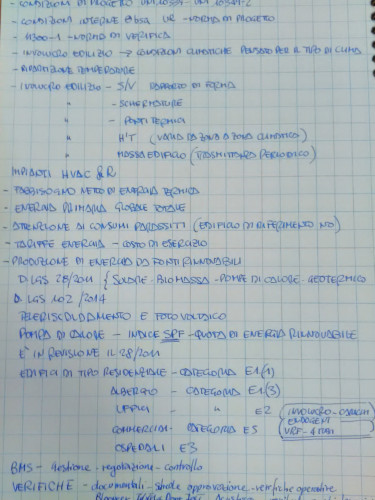 - CONDIZIONI DI PROGETTO UNI 10339 - UNI 10349-2
- CONDIZIONI INTERNE BASSA UR - NORMA DI PROGETTO
- 11300-1 - NORMA DI VERIFICA
- INVOLUCRO EDILIZIO → CONDIZIONI CLIMATICHE PENSATO PER IL TIPO DI CLIMA
- RIPARTIZIONE TEMPERATURE
- INVOLUCRO EDILIZIO - S/V RAPPORTO DI FORMA
" - SCHERMATURE
" - PONTI TERMICI
" H'T (VARIA DA ZONA A ZONA CLIMATICA)
" MASSA EDIFICIO (TRASMITTANZA PERIODICA)
IMPIANTI HVAC & R
- FABBISOGNO NETTO DI ENERGIA TERMICA
- ENERGIA PRIMARIA GLOBALE TOTALE
- ATTENZIONE AI CONSUMI PARASSITI (EDIFICIO DI RIFERIMENTO NO)
- TARIFFE ENERGIA - COSTO DI ESERCIZIO
- PRODUZIONE DI ENERGIA DA FONTI RINNOVABILI
D.LGS 28/2011 { SOLARE - BIOMASSA - POMPE DI CALORE - GEOTERMICO
D.LGS 102/2014
TELERISCALDAMENTO E FOTOVOLTAICO
POMPA DI CALORE - INDICE SPF - QUOTA DI ENERGIA RINNOVABILE
E' IN REVISIONE IL 28/2011
EDIFICI DI TIPO RESIDENZIALE - CATEGORIA E1(1)
ALBERGIO - CATEGORIA E1(3)
UFFICI - " E2 (INVOLUCRO - CARICHI
ENDOGENI
COMMERCIALI CATEGORIA E5 VRF - 4 TUBI)
OSPEDALI E3
BMS - Gestione - regolazione - controllo
VERIFICHE - documentali - strade approvazione - verifiche operative